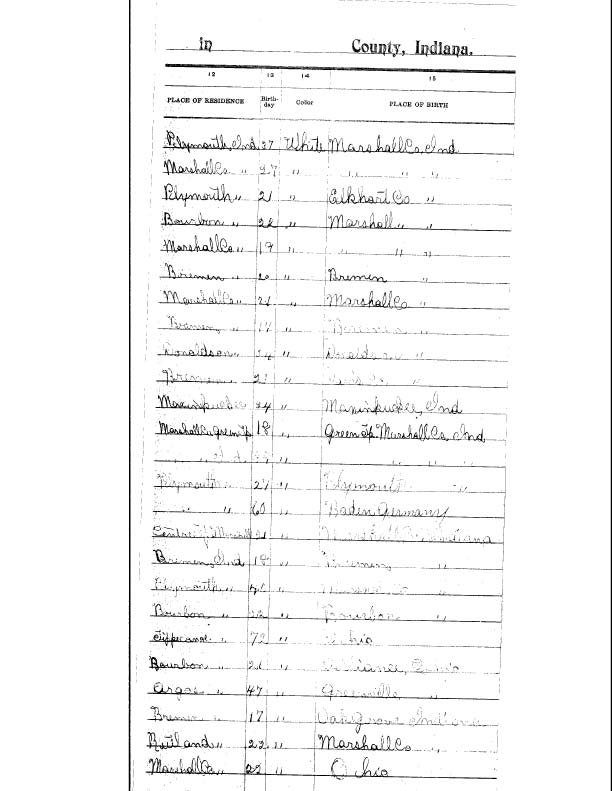 in County, Indiana.
12 13 14 15
PLACE OF RESIDENCE Birth-day Color PLACE OF BIRTH
Plymouth, Ind. 27 White Marshall Co, Ind
Marshall Co " 27 " " " " "
Plymouth " 21 " Elkhart Co "
Bourbon " 22 " Marshall " "
Marshall Co " 19 " " " "
Bremen " 20 " Bremen "
Marshall Co " 21 " Marshall Co "
Bremen, " " Bremen "
Donaldson " 24 " Donaldson "
Bremen "
Maxinkuckee 24 " Maxinkuckee, Ind
Marshall Co Green Tp. 18 " Green Tp. Marshall Co, Ind
" " " " "
Plymouth " 27 " Plymouth "
" " 60 " Baden Germany
21 " Indiana
Bremen, Ind 18 " Bremen, "
Plymouth " "
Bourbon " 22 " Bourbon "
Tippecanoe " 72 " Ohio
Bourbon " 21 " Alliance, Ohio
Argos " 47 " Greenville, "
Bremen " 17 " Oak Grove Indiana
Rutland " 22 " Marshall Co "
Marshall Co " 22 " Ohio